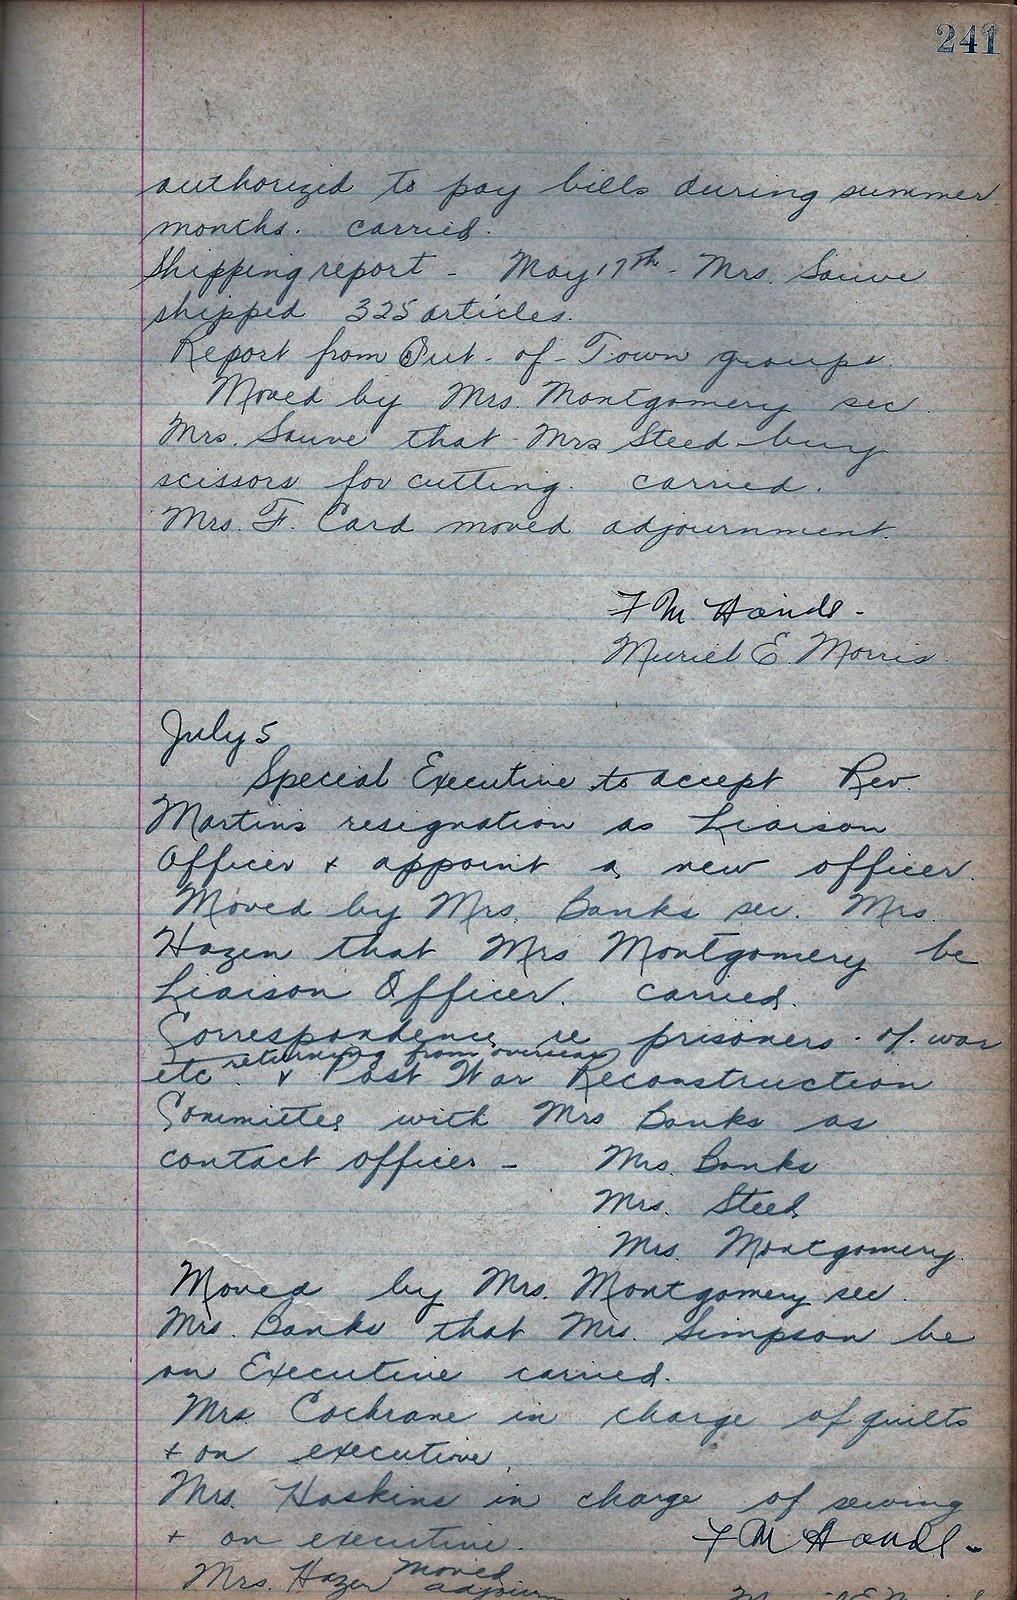 241
authorized to pay bills during summer
months. carried.
Shipping report - May 17th - Mrs. Sauve
shipped 325 articles.
Report from Out - of - Town groups.
Moved by Mrs. Montgomery sec.
Mrs. Sauve that Mrs Steed buy
scissors for cutting. carried.
Mrs. F. Card moved adjournment.
F M
Muriel E. Morris
July 5
Special Executive to accept Rev.
Martins resignation as Liaison
Officer & appoint a new officer.
Moved by Mrs. Banks sec. Mrs.
Hazen that Mrs Montgomery be
Liaison Officer. carried.
Correspondence re prisoners of war
returning from overseas
etc & Post War Reconstruction
Committee with Mrs Banks as
contact officer - Mrs. Banks
Mrs. Steed
Mrs. Montgomery.
Moved by Mrs. Montgomery sec.
Mrs. Banks that Mrs. Simpson be
on Executive carried.
Mrs. Cochrane in charge of quilts
+ on executive.
Mrs. Hoskins in charge of sewing
+ on executive. F M
Mrs. Hazen moved
adjourn